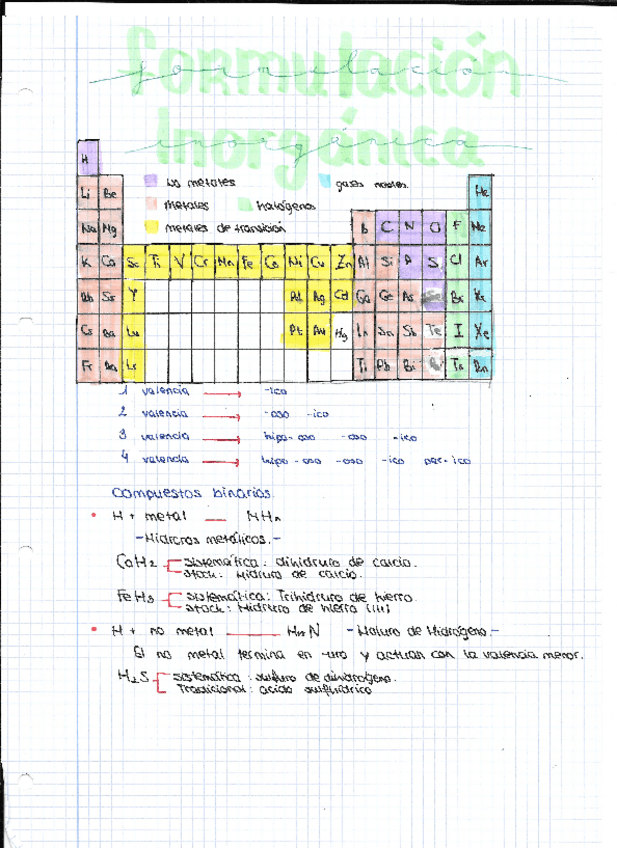 formulación
inorgánica
H
No metales
gases nobles.
He
Li Be
metales
halógenos
Na Mg
metales de transición
B C N O F Ne
K Ca Sc Ti V Cr Mn Fe Co Ni Cu Zn Al Si P S Cl Ar
Rb Sr Y Pd Ag Cd Ga Ge As Br Kr
Cs Ba Lu Pt Au Hg In Sn Sb Te I Xe
Fr Ra Lr Tl Pb Bi Ts Rn
1 valencia → -ico
2 valencia → -oso -ico
3 valencia → hipo-oso -oso -ico
4 valencia → hipo-oso -oso -ico per-ico
Compuestos binarios.
• H + metal — MHn
-Hidruros metálicos.-
CaH2 Sistemática: dihidruro de calcio.
Stock: Hidruro de calcio.
FeH3 Sistemática: Trihidruro de hierro.
Stock: Hidruro de hierro (III)
• H + no metal — HnN -Haluro de Hidrógeno-
El no metal termina en -uro y actúan con la valencia menor.
H2S Sistemática: sulfuro de dihidrógeno.
Tradicional: ácido sulfhídrico